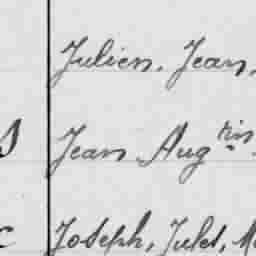 Julien, Jean,
Jean Aug tin
Joseph, Jules,